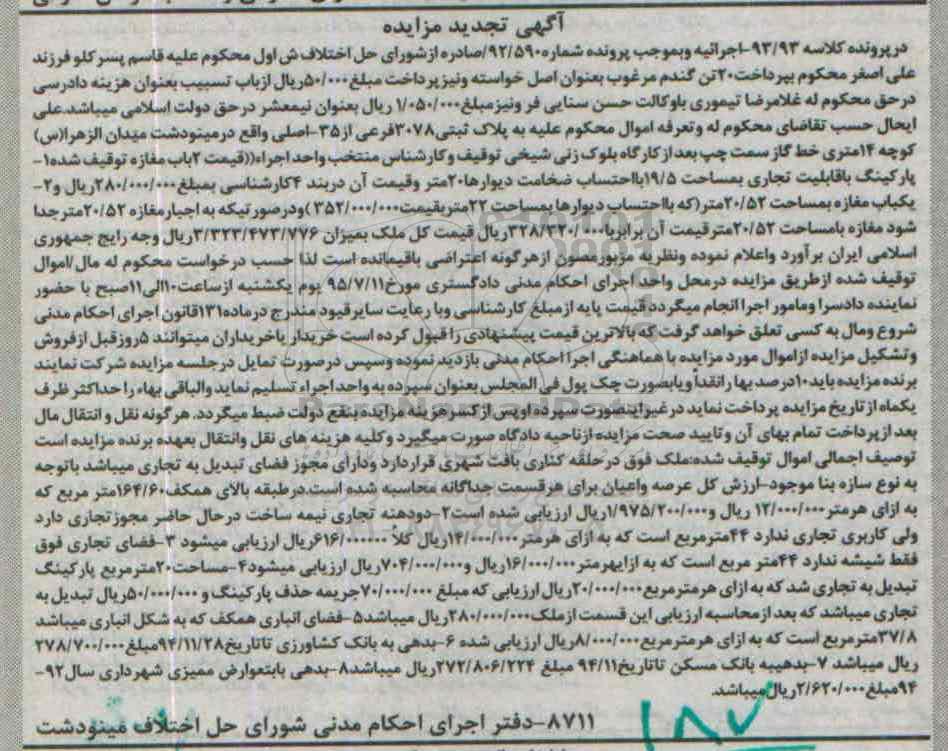 آگهی تجدید مزایده
درپرونده کلاسه ۹۳/۹۳-اجرائیه وبموجب پرونده شماره۹۲/۵۹۰/صادره ازشورای حل اختلاف ش اول محکوم علیه قاسم پسرکلو فرزند
علی اصغر محکوم بپرداخت۲۰تن گندم مرغوب بعنوان اصل خواسته ونیزپرداخت مبلغ۵۰/۰۰۰ریال ازباب تسبیب بعنوان هزینه دادرسی
درحق محکوم له غلامرضا تیموری باوکالت حسن سنایی فر ونیزمبلغ۱/۰۵۰/۰۰۰ ریال بعنوان نیمعشر درحق دولت اسلامی میباشد.علی
ایحال حسب تقاضای محکوم له وتعرفه اموال محکوم علیه به پلاک ثبتی۳۰۷۸فرعی از۳۵-اصلی واقع درمینودشت میدان الزهرا(س)
کوچه ۱۴متری خط گاز سمت چپ بعد ازکارگاه بلوک زنی شیخی توقیف وکارشناس منتخب واحد اجراء((قیمت ۲باب مغازه توقیف شده۱-
پارکینگ باقابلیت تجاری بمساحت ۱۹/۵بااحتساب ضخامت دیوارها۲۰متر وقیمت آن دربند ۴کارشناسی بمبلغ۲۸۰/۰۰۰/۰۰۰ریال و۲-
یکباب مغازه بمساحت ۲۰/۵۲متر(که بااحتساب دیوارها بمساحت ۲۲متربقیمت۳۵۲/۰۰۰/۰۰۰ )ودرصورتیکه به اجبارمغازه ۲۰/۵۲مترجدا
شود مغازه بامساحت ۲۰/۵۲مترقیمت آن برابربا۳۲۸/۳۲۰/۰۰۰ریال قیمت کل ملک بمیزان ۳/۳۲۳/۴۷۳/۷۷۶ریال وجه رایج جمهوری
اسلامی ایران برآورد واعلام نموده ونظریه مزبورمصون ازهرگونه اعتراضی باقیمانده است لذا حسب درخواست محکوم له مال/اموال
توقیف شده ازطریق مزایده درمحل واحد اجرای احکام مدنی دادگستری مورخ۹۵/۷/۱۱ یوم یکشنبه ازساعت۱۰الی۱۱صبح با حضور
نماینده دادسرا ومامور اجرا انجام میگردد قیمت پایه ازمبلغ کارشناسی وبا رعایت سایرقیود مندرج درماده۱۳۱قانون اجرای احکام مدنی
شروع ومال به کسی تعلق خواهد گرفت که بالاترین قیمت پیشنهادی را قبول کرده است خریدار یاخریداران میتوانند ۵روزقبل ازفروش
وتشکیل مزایده ازاموال مورد مزایده با هماهنگی اجرا احکام مدنی بازدید نموده وسپس درصورت تمایل درجلسه مزایده شرکت نمایند
برنده مزایده باید۱۰درصد بها رانقداً ویابصورت چک پول فی المجلس بعنوان سپرده به واحد اجراء تسلیم نماید والباقی بهاء را حداکثر ظرف
یکماه ازتاریخ مزایده پرداخت نماید درغیراینصورت سپرده او پس ازکسرهزینه مزایده بنفع دولت ضبط میگردد. هرگونه نقل و انتقال مال
بعد ازپرداخت تمام بهای آن وتایید صحت مزایده ازناحیه دادگاه صورت میگیرد وکلیه هزینه های نقل وانتقال بعهده برنده مزایده است
توصیف اجمالی اموال توقیف شده:ملک فوق درحلقه کناری بافت شهری قراردارد ودارای مجوز فضای تبدیل به تجاری میباشد باتوجه
به نوع سازه بنا موجود-ارزش کل عرصه واعیان برای هرقسمت جداگانه محاسبه شده است.درطبقه بالای همکف۱۶۴/۶۰متر مربع که
به ازای هرمتر۱۲/۰۰۰/۰۰۰ ریال و۱/۹۷۵/۲۰۰/۰۰۰ریال ارزیابی شده است۲-دودهنه تجاری نیمه ساخت درحال حاضر مجوزتجاری دارد
ولی کاربری تجاری ندارد ۴۴مترمربع است که به ازای هرمتر۱۴/۰۰۰/۰۰۰ریال کلاً ۶۱۶/۰۰۰۰۰۰ریال ارزیابی میشود ۳-فضای تجاری فوق
فقط شیشه ندارد ۴۴متر مربع است که به ازایهرمتر۱۶/۰۰۰/۰۰۰ریال و۷۰۴/۰۰۰/۰۰۰ریال ارزیابی میشود۴-مساحت۲۰مترمربع پارکینگ
تبدیل به تجاری شد که به ازای هرمترمربع۲۰/۰۰۰/۰۰۰ریال ارزیابی که مبلغ ۷۰/۰۰۰/۰۰۰جریمه حذف پارکینگ و ۵۰/۰۰۰/۰۰۰ریال تبدیل به
تجاری میباشد که بعد ازمحاسبه ارزیابی این قسمت ازملک۲۸۰/۰۰۰/۰۰۰ریال میباشد۵-فضای انباری همکف که به شکل انباری میباشد
۳۷/۸مترمربع است که به ازای هرمترمربع۸/۰۰۰/۰۰۰ریال ارزیابی شده ۶-بدهی به بانک کشاورزی تاتاریخ۹۴/۱۱/۲۸مبلغ۲۷۸/۷۰۰/۰۰۰
ریال میباشد ۷-بدهیبه بانک مسکن تاتاریخ۹۴/۱۱ مبلغ ۲۷۲/۸۰۶/۲۲۴ریال میباشد۸-بدهی بابتعوارض ممیزی شهرداری سال۹۲-
۹۴مبلغ۲/۶۲۰/۰۰۰ریال میباشد.
۸۷۱۱-دفتر اجرای احکام مدنی شورای حل اختلاف مینودشت
۱۸۷